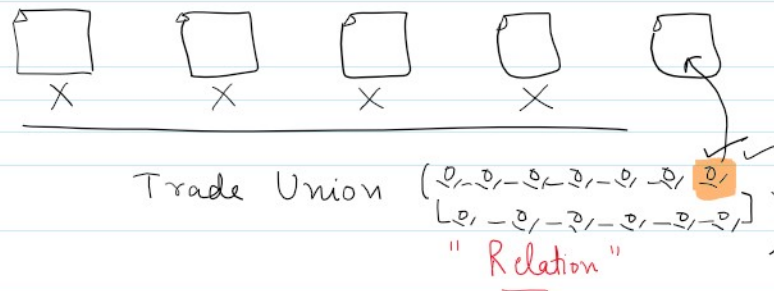 X X X X
Trade Union
"Relation"